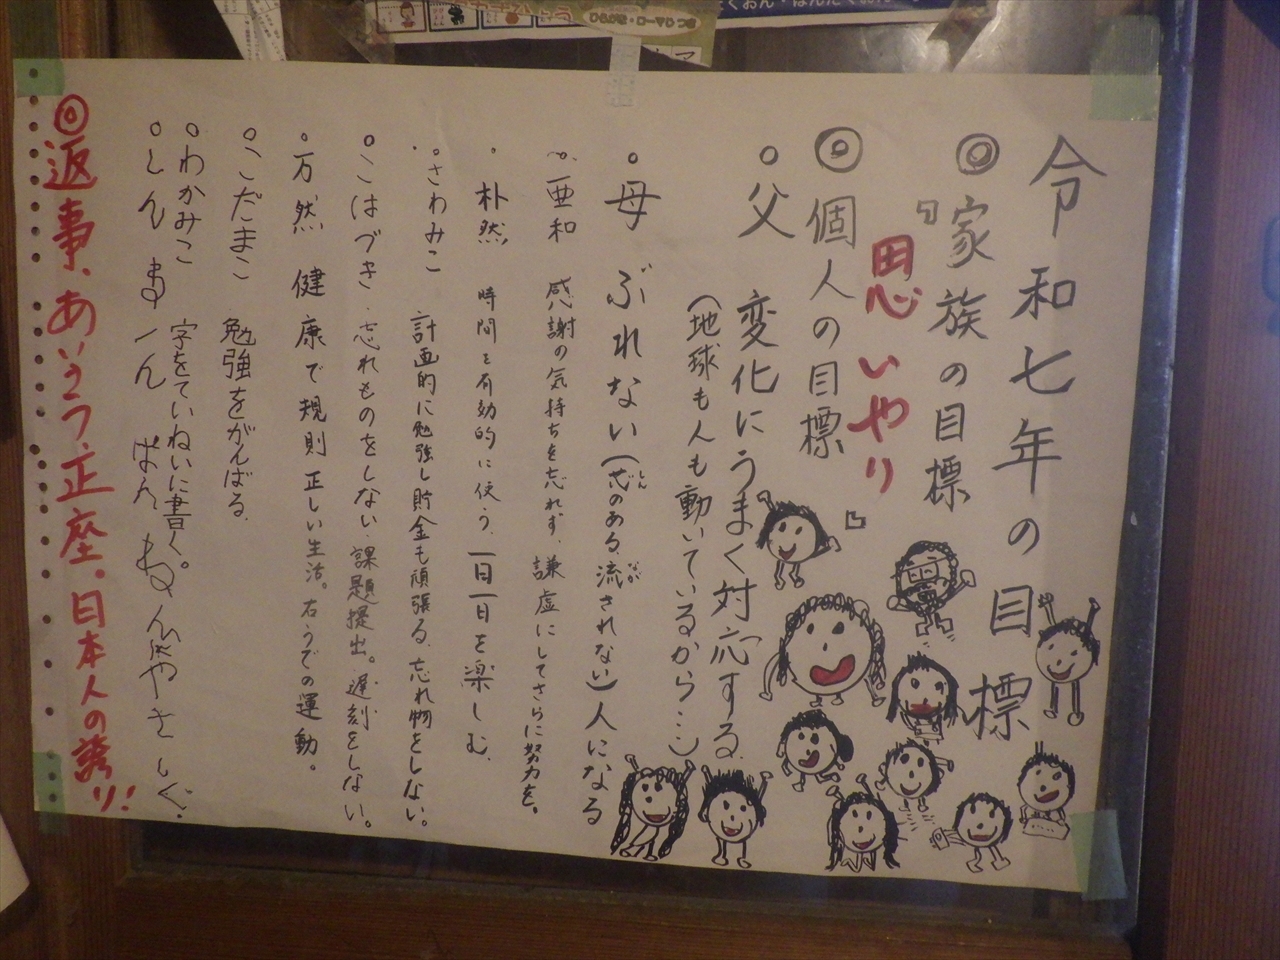 令和七年の目標
◎家族の目標
『思いやり』
◎個人の目標
○父 変化にうまく対応する
(地球も人も動いているから…)
○母 ぶれない(芯のある、流されない)人になる
しん
なが
亜和 感謝の気持ちを忘れず、謙虚にしてさらに努力を。
・朴然 時間を有効的に使う、一日一日を楽しむ
・さわみこ 計画的に勉強し貯金も頑張る、忘れ物をしない。
○こはづき・忘れものをしない、課題提出。遅刻をしない。
○万然 健康で規則正しい生活。右うでの運動。
○こだまこ 勉強をがんばる
○わかみこ 字をていねいに書く。
○しん
◎返事、あいさつ、正座。日本人の誇り!